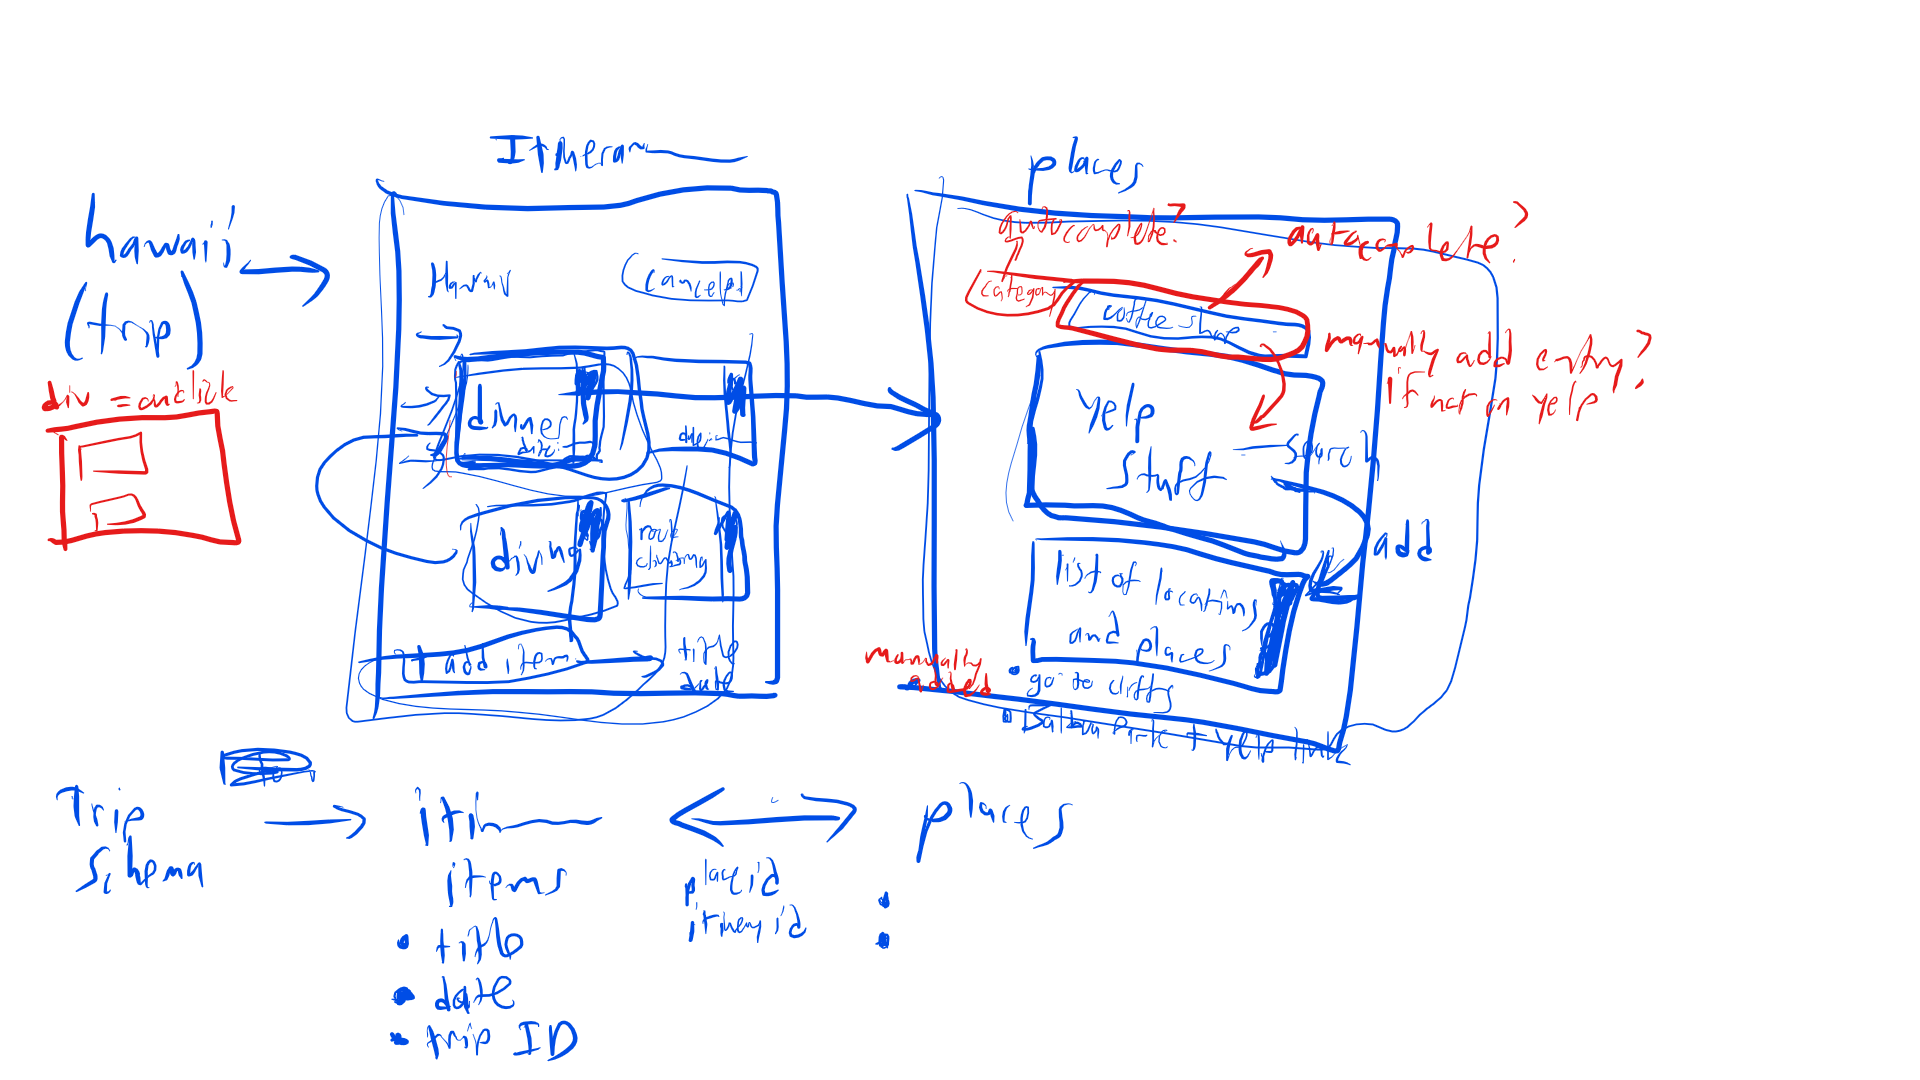 hawaii
(trip)
div = anclible
Itinerar
Hawaii
cancelpl
dinner
date:
date:
diving
rock
climbing
+ add item
title
date
places
autocomplete?
autocomplete?
category
coffee shop
manually add entry?
if not on yelp
yelp
stuff
search
add
list of locations
and places
manually
added
• go to cliffs
• Balboa Park + yelp link
Trip
Schema
itin
items
• title
• date
• trip ID
place id
itinery id
places